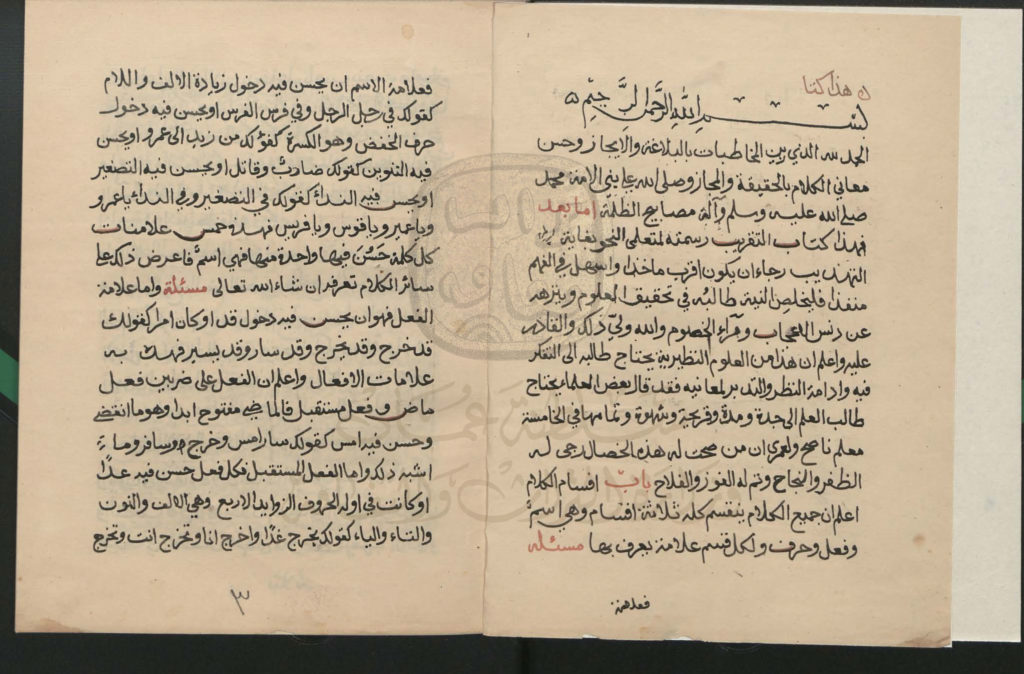 ه هذا كتا
بسم الله الرحمن الرحيم ه
الحمد لله الذي زين المخاطبات بالبلاغة والايجاز وحسن
معاني الكلام بالحقيقة والمجاز وصلى الله على نبي الامة محمد
صلى الله عليه وسلم وآله مصابيح الظلمة اما بعد
فهذا كتاب التقريب رسمته لمتعلمي النحو بغاية
التهذيب رجاء ان يكون اقرب ماخذا واسهل في الفهم
منفذا فليخلص النية طالبه في تحقيق العلوم ويتنزه
عن دنس الاعجاب ومراء الخصوم والله ولي ذلك والقادر
عليه واعلم ان هذا من العلوم النظيرية يحتاج طالبه الى التفكر
فيه وادامة النظر والتدبر لمعانيه فقد قال بعض العلماء يحتاج
طالب العلم الى جدة ومدة وقريحة وشهوة وتمامها في الخامسة
معلم ناصح ولعمري ان من صحت له هذه الخصال رجي له
الظفر والنجاح وتم له الفوز والفلاح باب اقسام الكلام
اعلم ان جميع الكلام ينقسم كله ثلاثة اقسام وهي اسم
وفعل وحرف ولكل قسم علامة يعرف بها مسئله
فعلامة
فعلامة الاسم ان يحسن فيه دخول زيادة الالف واللام
كقولك في رجل الرجل وفي فرس الفرس او يحسن فيه دخول
حرف الخفض وهو الكسرة كقولك من زيد الى عمرو او يحسن
فيه التنوين كقولك ضارب وقاتل او يحسن فيه التصغير
او يحسن فيه النداء كقولك في التصغير وفي النداء يا عمرو
ويا عمير ويا فرس ويا فريس فهذه خمس علامات
كل كلمة حسن فيها واحدة منها فهي اسم فاعرض ذلك على
سائر الكلام تعرفه ان شاء الله تعالى مسئلة واما علامة
الفعل فهو ان يحسن فيه دخول قد او كان امرا كقولك
قد خرج وقد يخرج وقد سار وقد يسير فهذه به
علامات الافعال واعلم ان الفعل على ضربين فعل
ماض وفعل مستقبل فالماضي مفتوح ابدا وهو ما انقضى
وحسن فيه امس كقولك سار امس وخرج وسافر وما
اشبه ذلك واما الفعل المستقبل فكل فعل حسن فيه غدا
او كانت في اوله الحروف الزوايد الاربع وهي الالف والنون
والتاء والياء كقولك يخرج غدا واخرج انا وتخرج انت وتخرج
٣